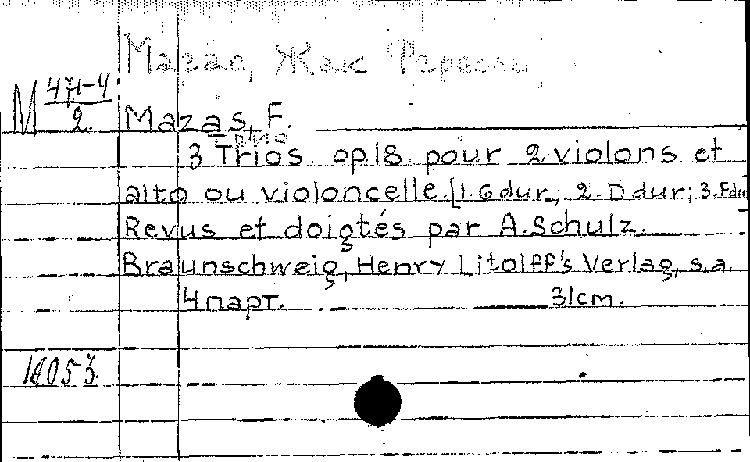 Мазас, Жак
М 471-4
2
Mazas, F.
3 Trios op.18 pour 2 violons et
alto ou violoncelle.[1. G dur., 2. D dur; 3. F dur
Revus et doigtés par A. Schulz.
Braunschweig, Henry Litolff's Verlag, s.a.
4 парт. 31cm.
18053